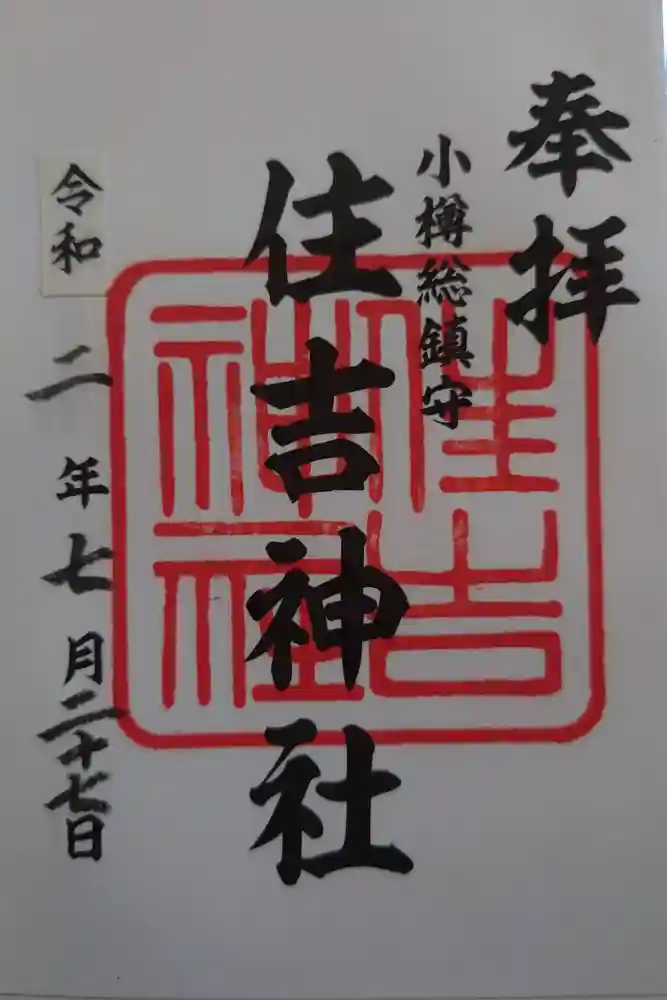 奉拝
小樽総鎮守
住吉神社
令和二年七月二十七日
住吉
神社